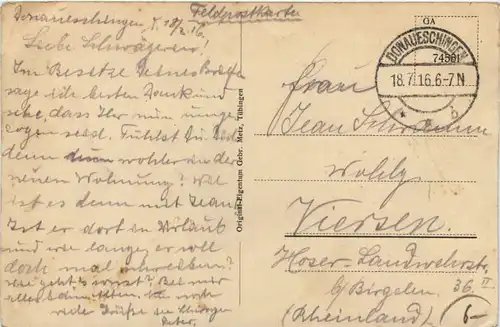 Feldpostkarte
Donaueschingen, 18/7.16.
Liebe Schwägerin!
Im Besitze Deines Briefes
sage ich besten Dank und
sehe, dass Ihr nun umge-
zogen seid. Fühlst Du
denn nun wohler in der
neuen Wohnung? Wie
ist es denn mit Jean
Ist er dort in Urlaub
und wie lange, er soll
doch mal schreiben?
Wie geht's sonst? Bei mir
alles beim Alten. noch
viele Grüße
Peter.
Original-Eigentum Gebr. Metz, Tübingen
GA
74501
DONAUESCHINGEN
18.7.16.6-7N
* a b
Frau
Jean Schramm
Wohlg
Viersen.
Hoser-Landwehrstr.
36. II
b/ Birgelen.
(Rheinland)
6-